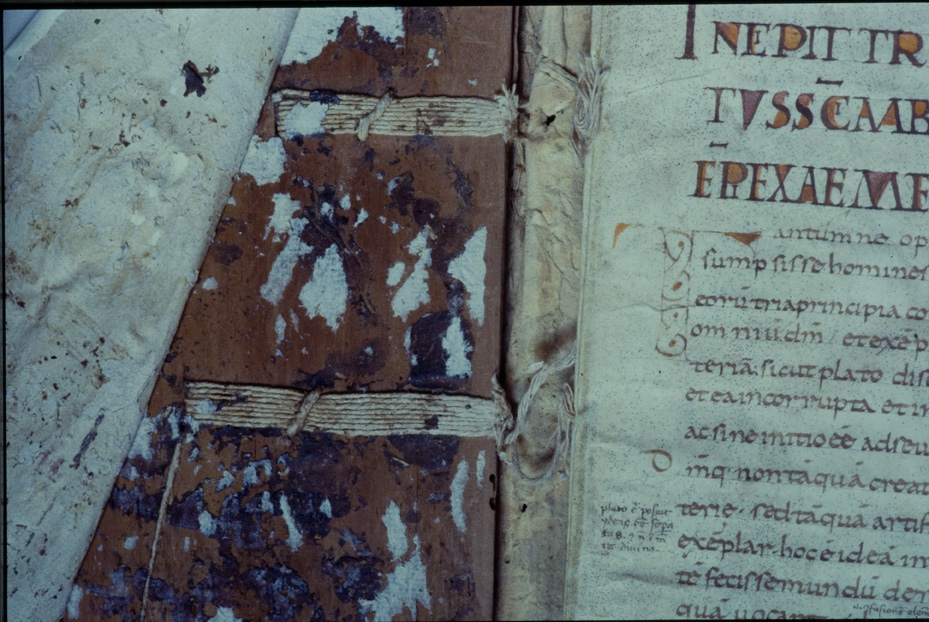 INCIPIT TR
TVS SC̄I AMB
EP̄I EXAEME
antumne op
sumpsisse homines
eorū tria principia co
om niū dm̄ et exēp
teriā. sicut plato dis
et ea incorrupta et in
ac sine initio eē adseu
inq non tā quā creat
terie sed tā quā artif
exēplar hoc ē ideā in
tē fecisse mundū de
quā uocant
plato ē